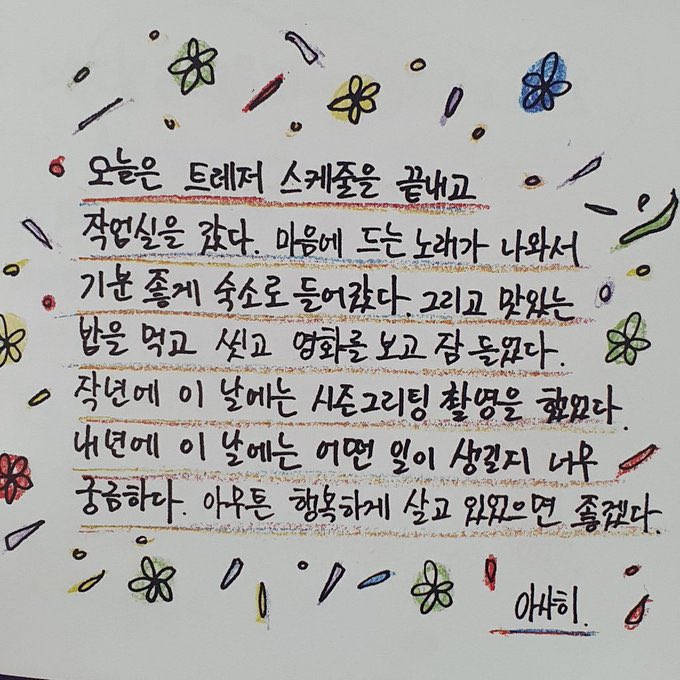 오늘은 트레저 스케줄을 끝내고
작업실을 갔다. 마음에 드는 노래가 나와서
기분 좋게 숙소로 들어갔다. 그리고 맛있는
밥을 먹고 씻고 영화를 보고 잠 들었다.
작년에 이 날에는 시즌그리팅 촬영을 했었다.
내년에 이 날에는 어떤 일이 생길지 너무
궁금하다. 아무튼 행복하게 살고 있었으면 좋겠다.
아사히.